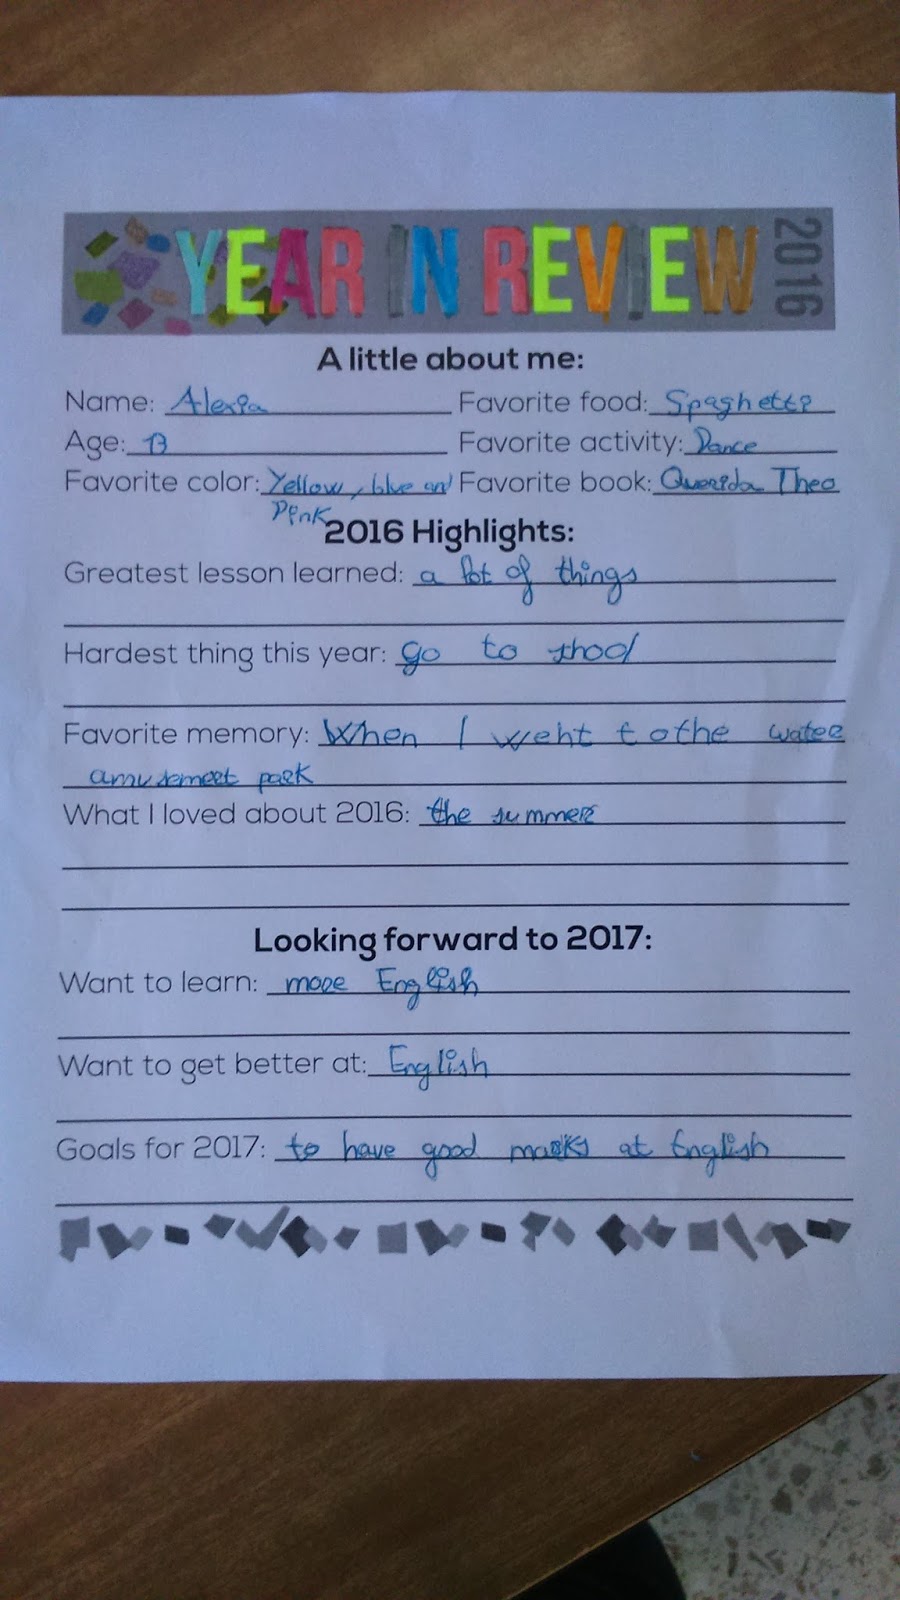 YEAR IN REVIEW 2016
A little about me:
Name: Alexia Favorite food: Spaghetti
Age: 13 Favorite activity: Dance
Favorite color: Yellow, blue and Favorite book: Querida Theo
Pink
2016 Highlights:
Greatest lesson learned: a lot of things
Hardest thing this year: go to shool
Favorite memory: When I went to the water
amusemeet park
What I loved about 2016: the summer
Looking forward to 2017:
Want to learn: more English
Want to get better at: English
Goals for 2017: to have good marks at English